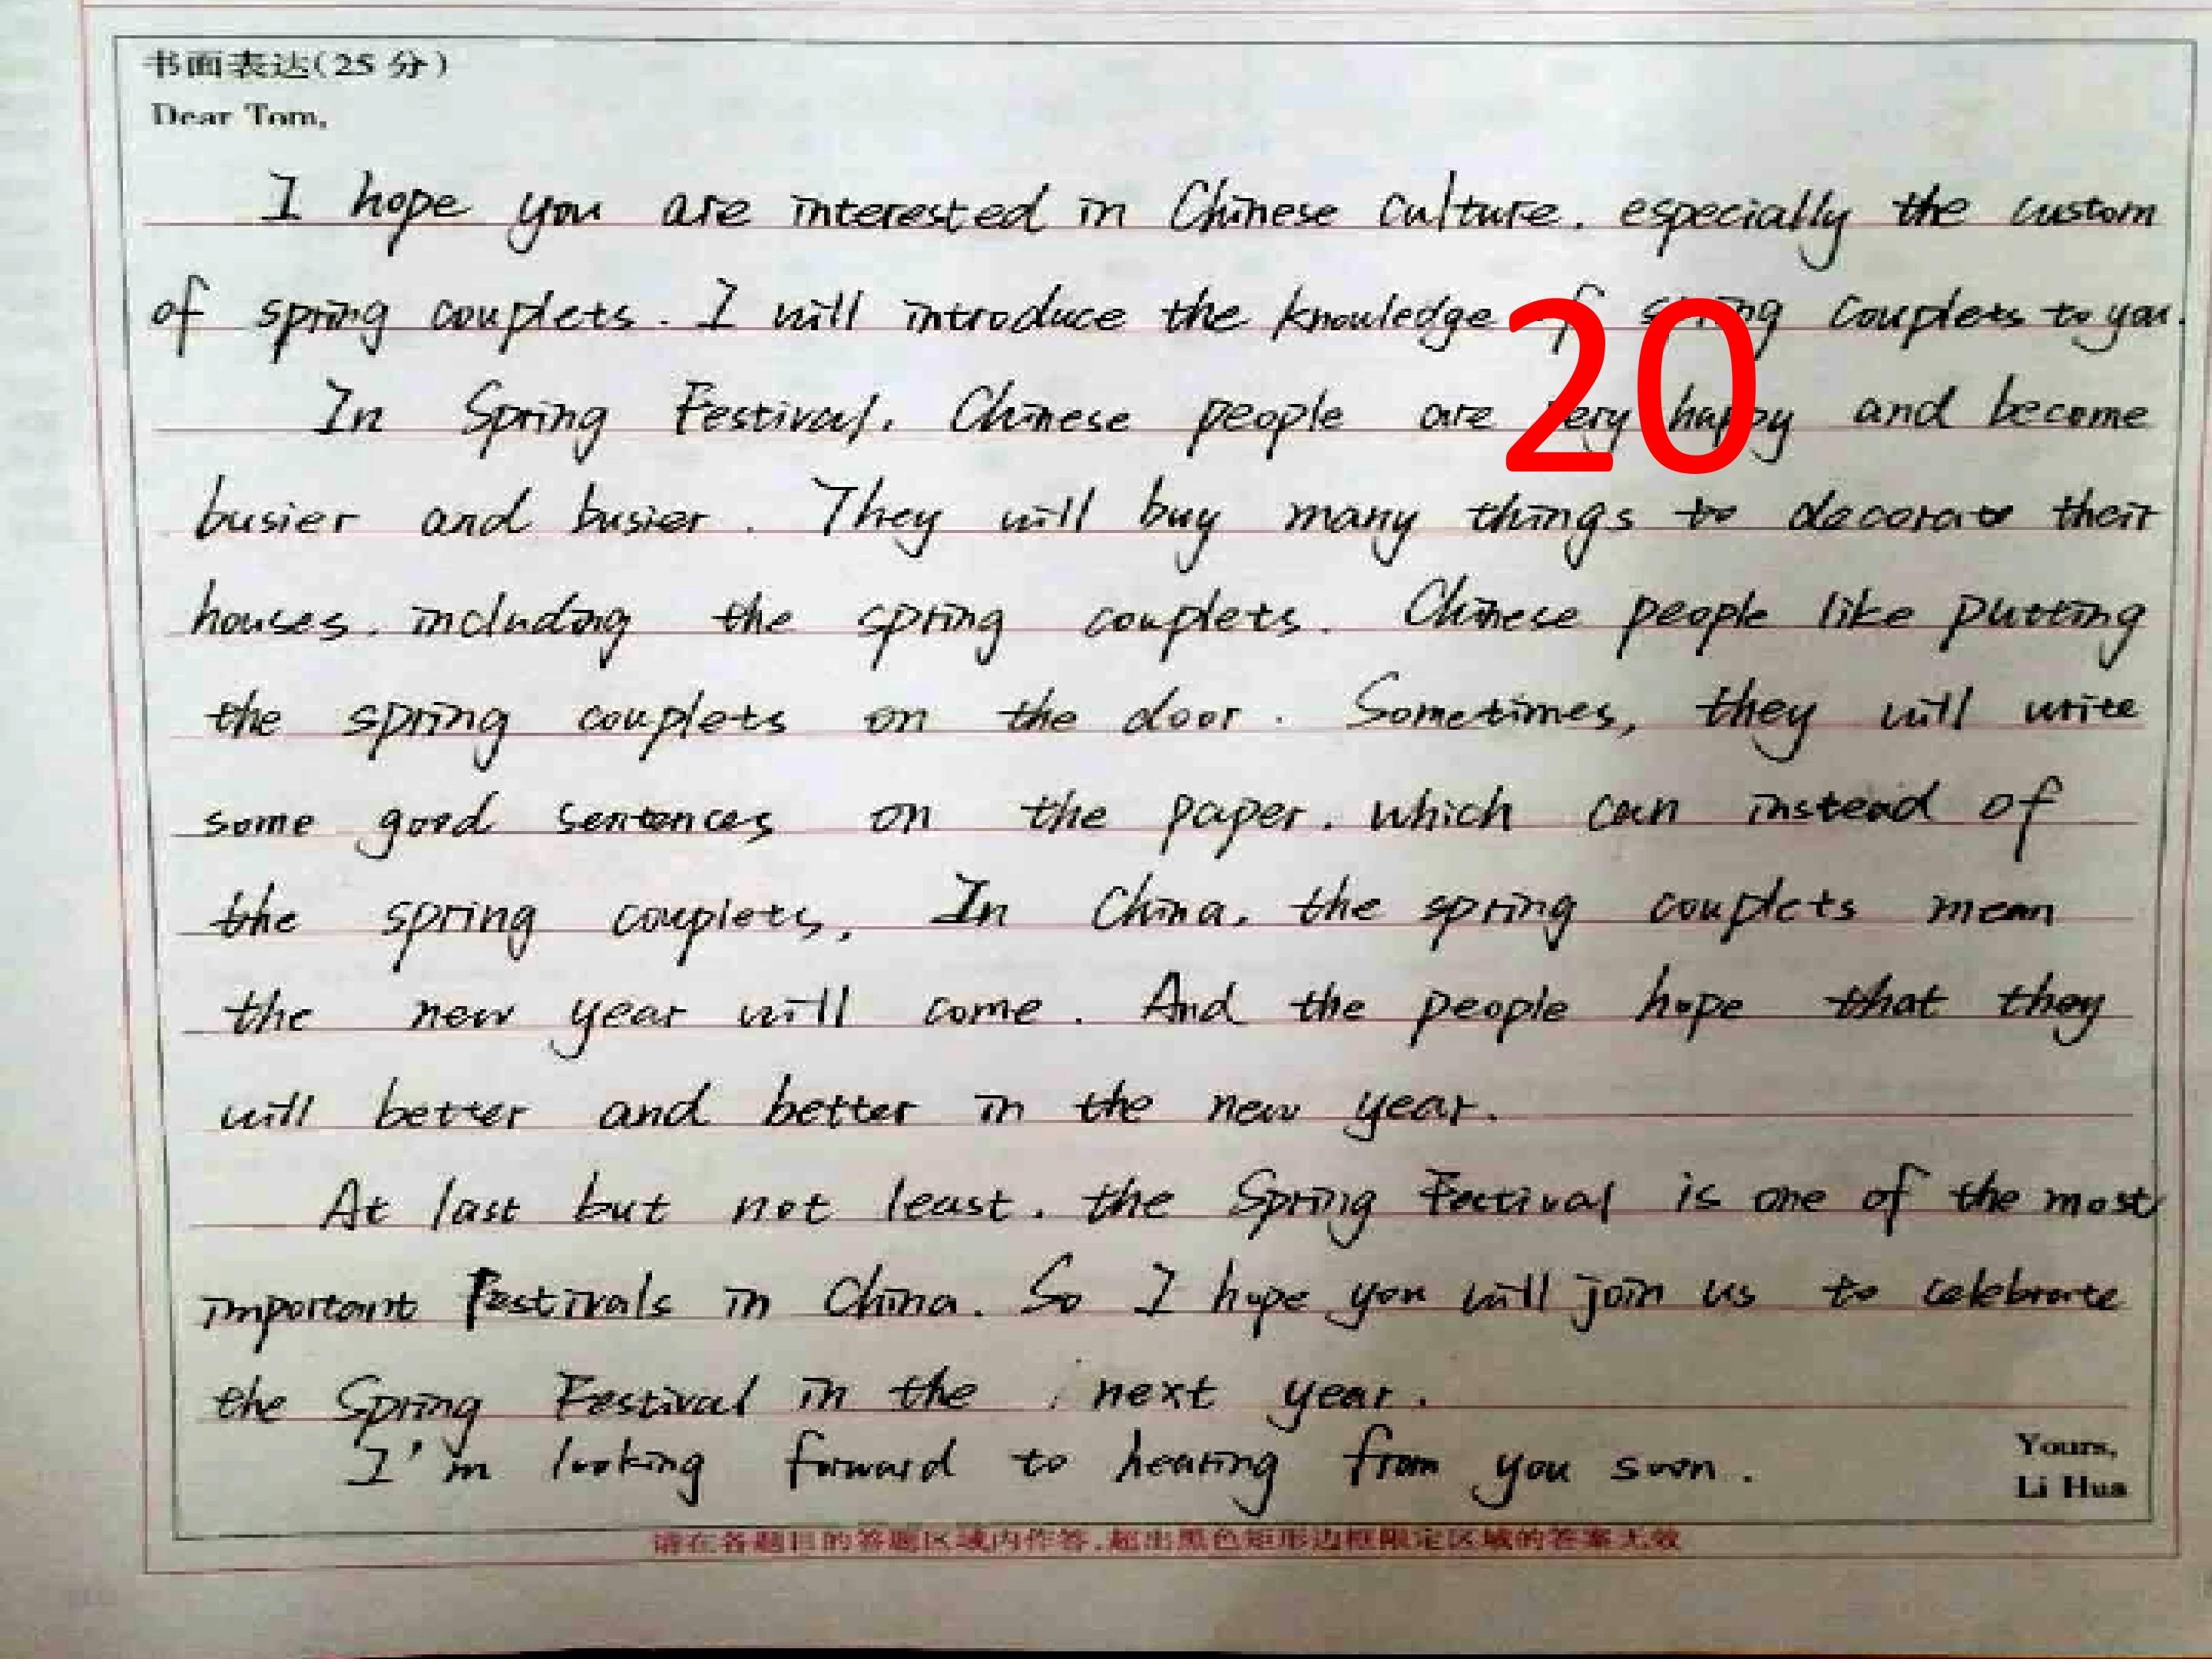 书面表达(25 分)
Dear Tom,
I hope you are interested in Chinese culture, especially the custom
of spring couplets. I will introduce the knowledge of spring couplets to you.
20
In Spring Festival, Chinese people are very happy and become
busier and busier. They will buy many things to decorate their
houses, including the spring couplets. Chinese people like putting
the spring couplets on the door. Sometimes, they will write
some good sentences on the paper, which can instead of
the spring couplets. In China, the spring couplets mean
the new year will come. And the people hope that they
will better and better in the new year.
At last but not least, the Spring Festival is one of the most
important Festivals in China. So I hope you will join us to celebrate
the Spring Festival in the next year.
I'm looking forward to hearing from you soon.
Yours,
Li Hua
请在各题目的答题区域内作答,超出黑色矩形边框限定区域的答案无效